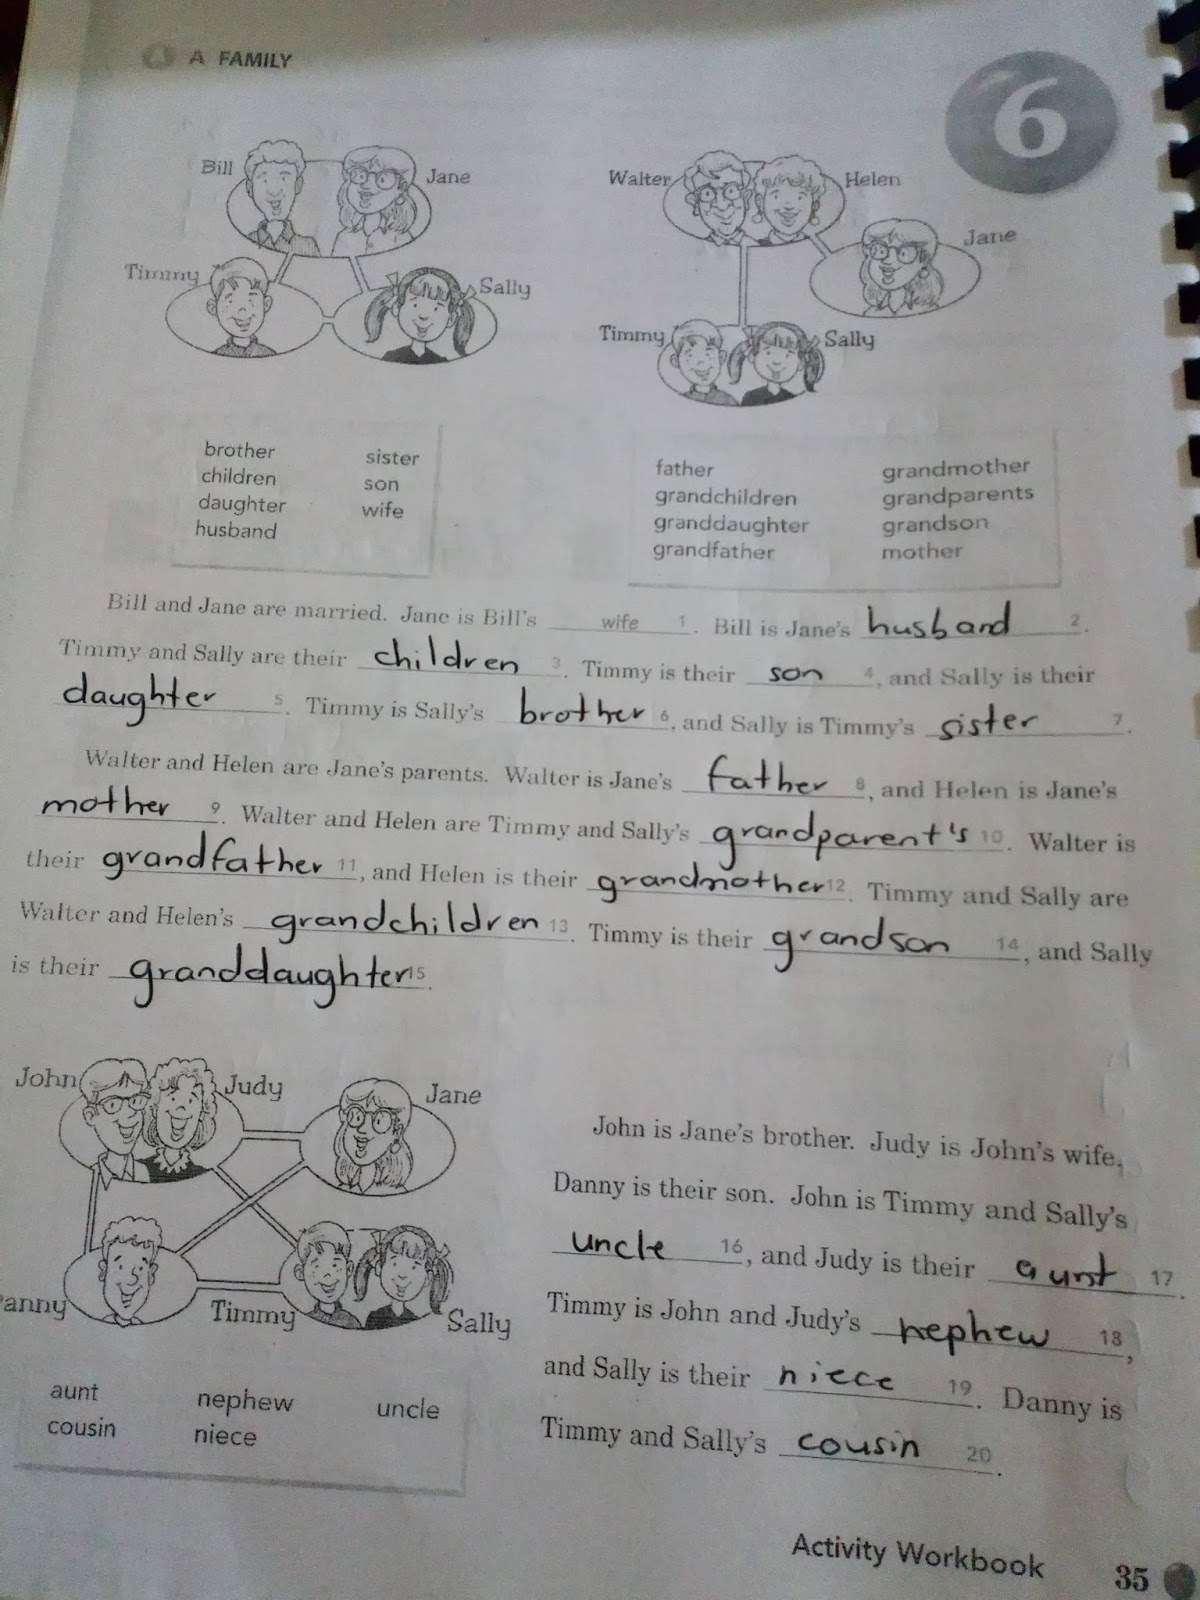 A A FAMILY
6
Bill
Jane
Timmy
Sally
Walter
Helen
Jane
Timmy
Sally
brother sister
children son
daughter wife
husband
father grandmother
grandchildren grandparents
granddaughter grandson
grandfather mother
Bill and Jane are married. Jane is Bill's wife 1. Bill is Jane's husband 2.
Timmy and Sally are their children 3. Timmy is their son 4, and Sally is their
daughter 5. Timmy is Sally's brother 6, and Sally is Timmy's sister 7.
Walter and Helen are Jane's parents. Walter is Jane's father 8, and Helen is Jane's
mother 9. Walter and Helen are Timmy and Sally's grandparent's 10. Walter is
their grandfather 11, and Helen is their grandmother 12. Timmy and Sally are
Walter and Helen's grandchildren 13. Timmy is their grandson 14, and Sally
is their granddaughter 15.
John
Judy
Jane
anny
Timmy
Sally
aunt nephew uncle
cousin niece
John is Jane's brother. Judy is John's wife.
Danny is their son. John is Timmy and Sally's
uncle 16, and Judy is their aunt 17.
Timmy is John and Judy's nephew 18,
and Sally is their niece 19. Danny is
Timmy and Sally's cousin 20.
Activity Workbook 35